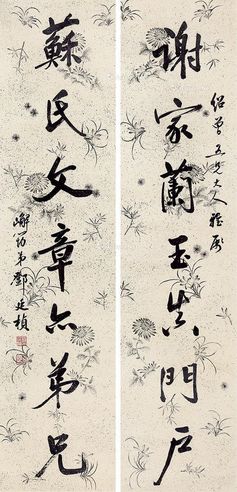 曾五兄大人雅屬
謝家蘭玉真門戶
蘇氏文章亦弟兄
嶰筠弟鄧廷楨